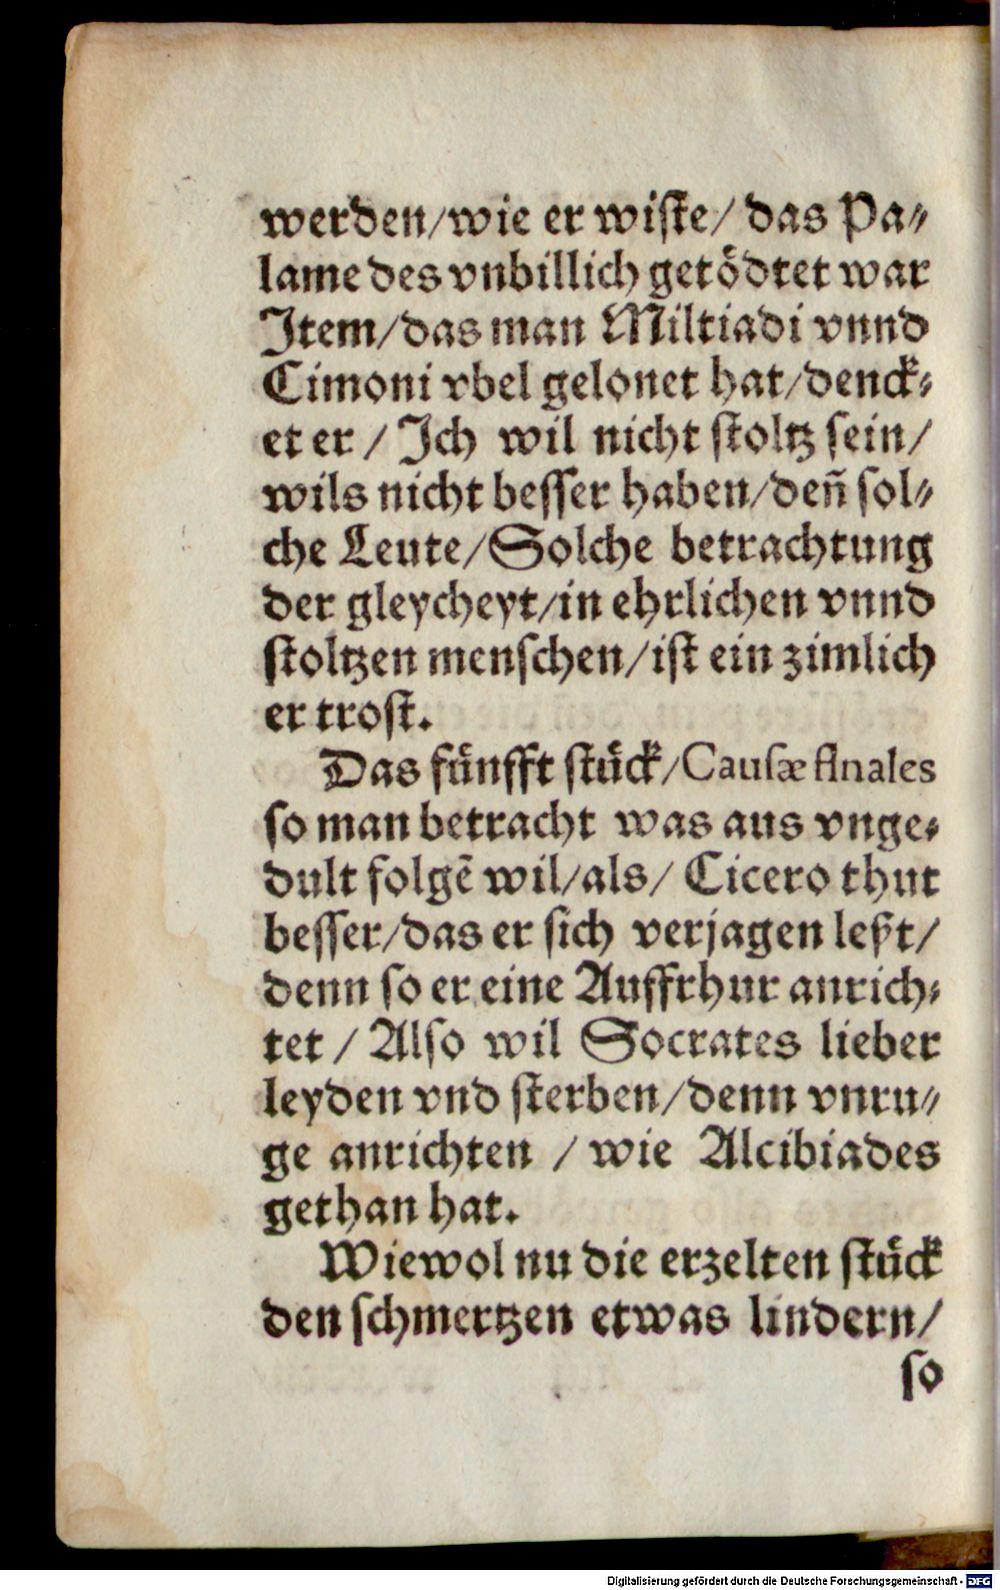 werden/wie er wiste/ das Pa⸗
lame des vnbillich getödtet war
Item/das man Miltiadi vnnd
Cimoni vbel gelonet hat/denck⸗
et er / Ich wil nicht stoltz sein/
wils nicht besser haben/deñ sol⸗
che Leute/Solche betrachtung
der gleycheyt/in ehrlichen vnnd
stoltzen menschen/ist ein zimlich
er trost.
Das fünfft stück/Causæ finales
so man betracht was aus vnge⸗
dult folgẽ wil/als/ Cicero thut
besser/das er sich verjagen leßt/
denn so er eine Auffrhur anrich⸗
tet / Also wil Socrates lieber
leyden vnd sterben/denn vnru⸗
ge anrichten / wie Alcibiades
gethan hat.
Wiewol nu die erzelten stück
den schmertzen etwas lindern/
so
Digitalisierung gefördert durch die Deutsche Forschungsgemeinschaft - DFG